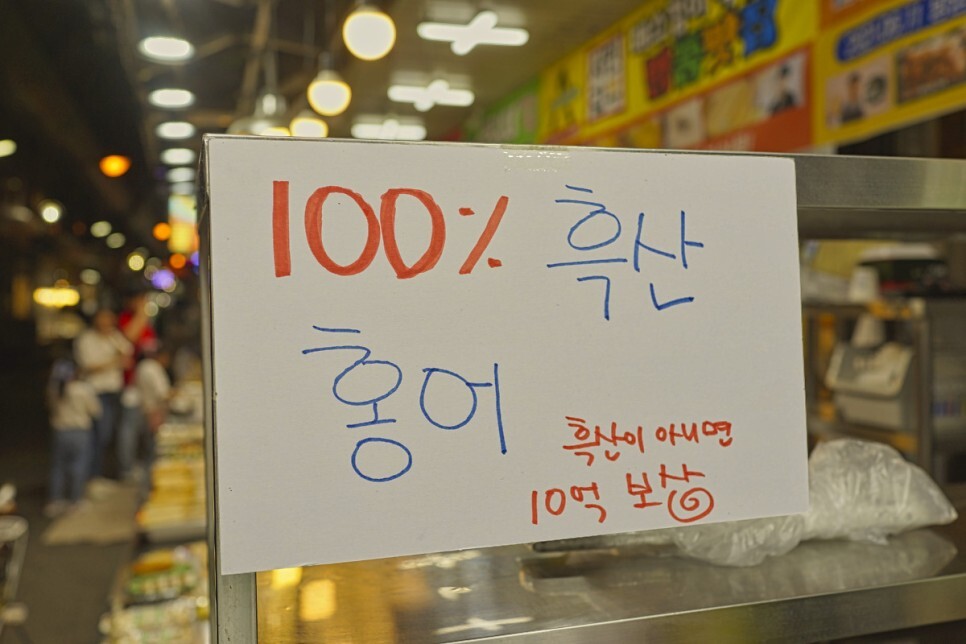 100% 흑산
홍어
흑산이 아니면
10억 보상